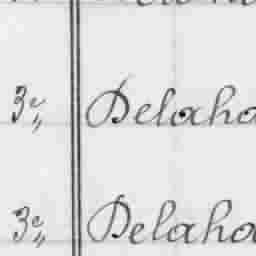 3e Delaha
3e Delaha